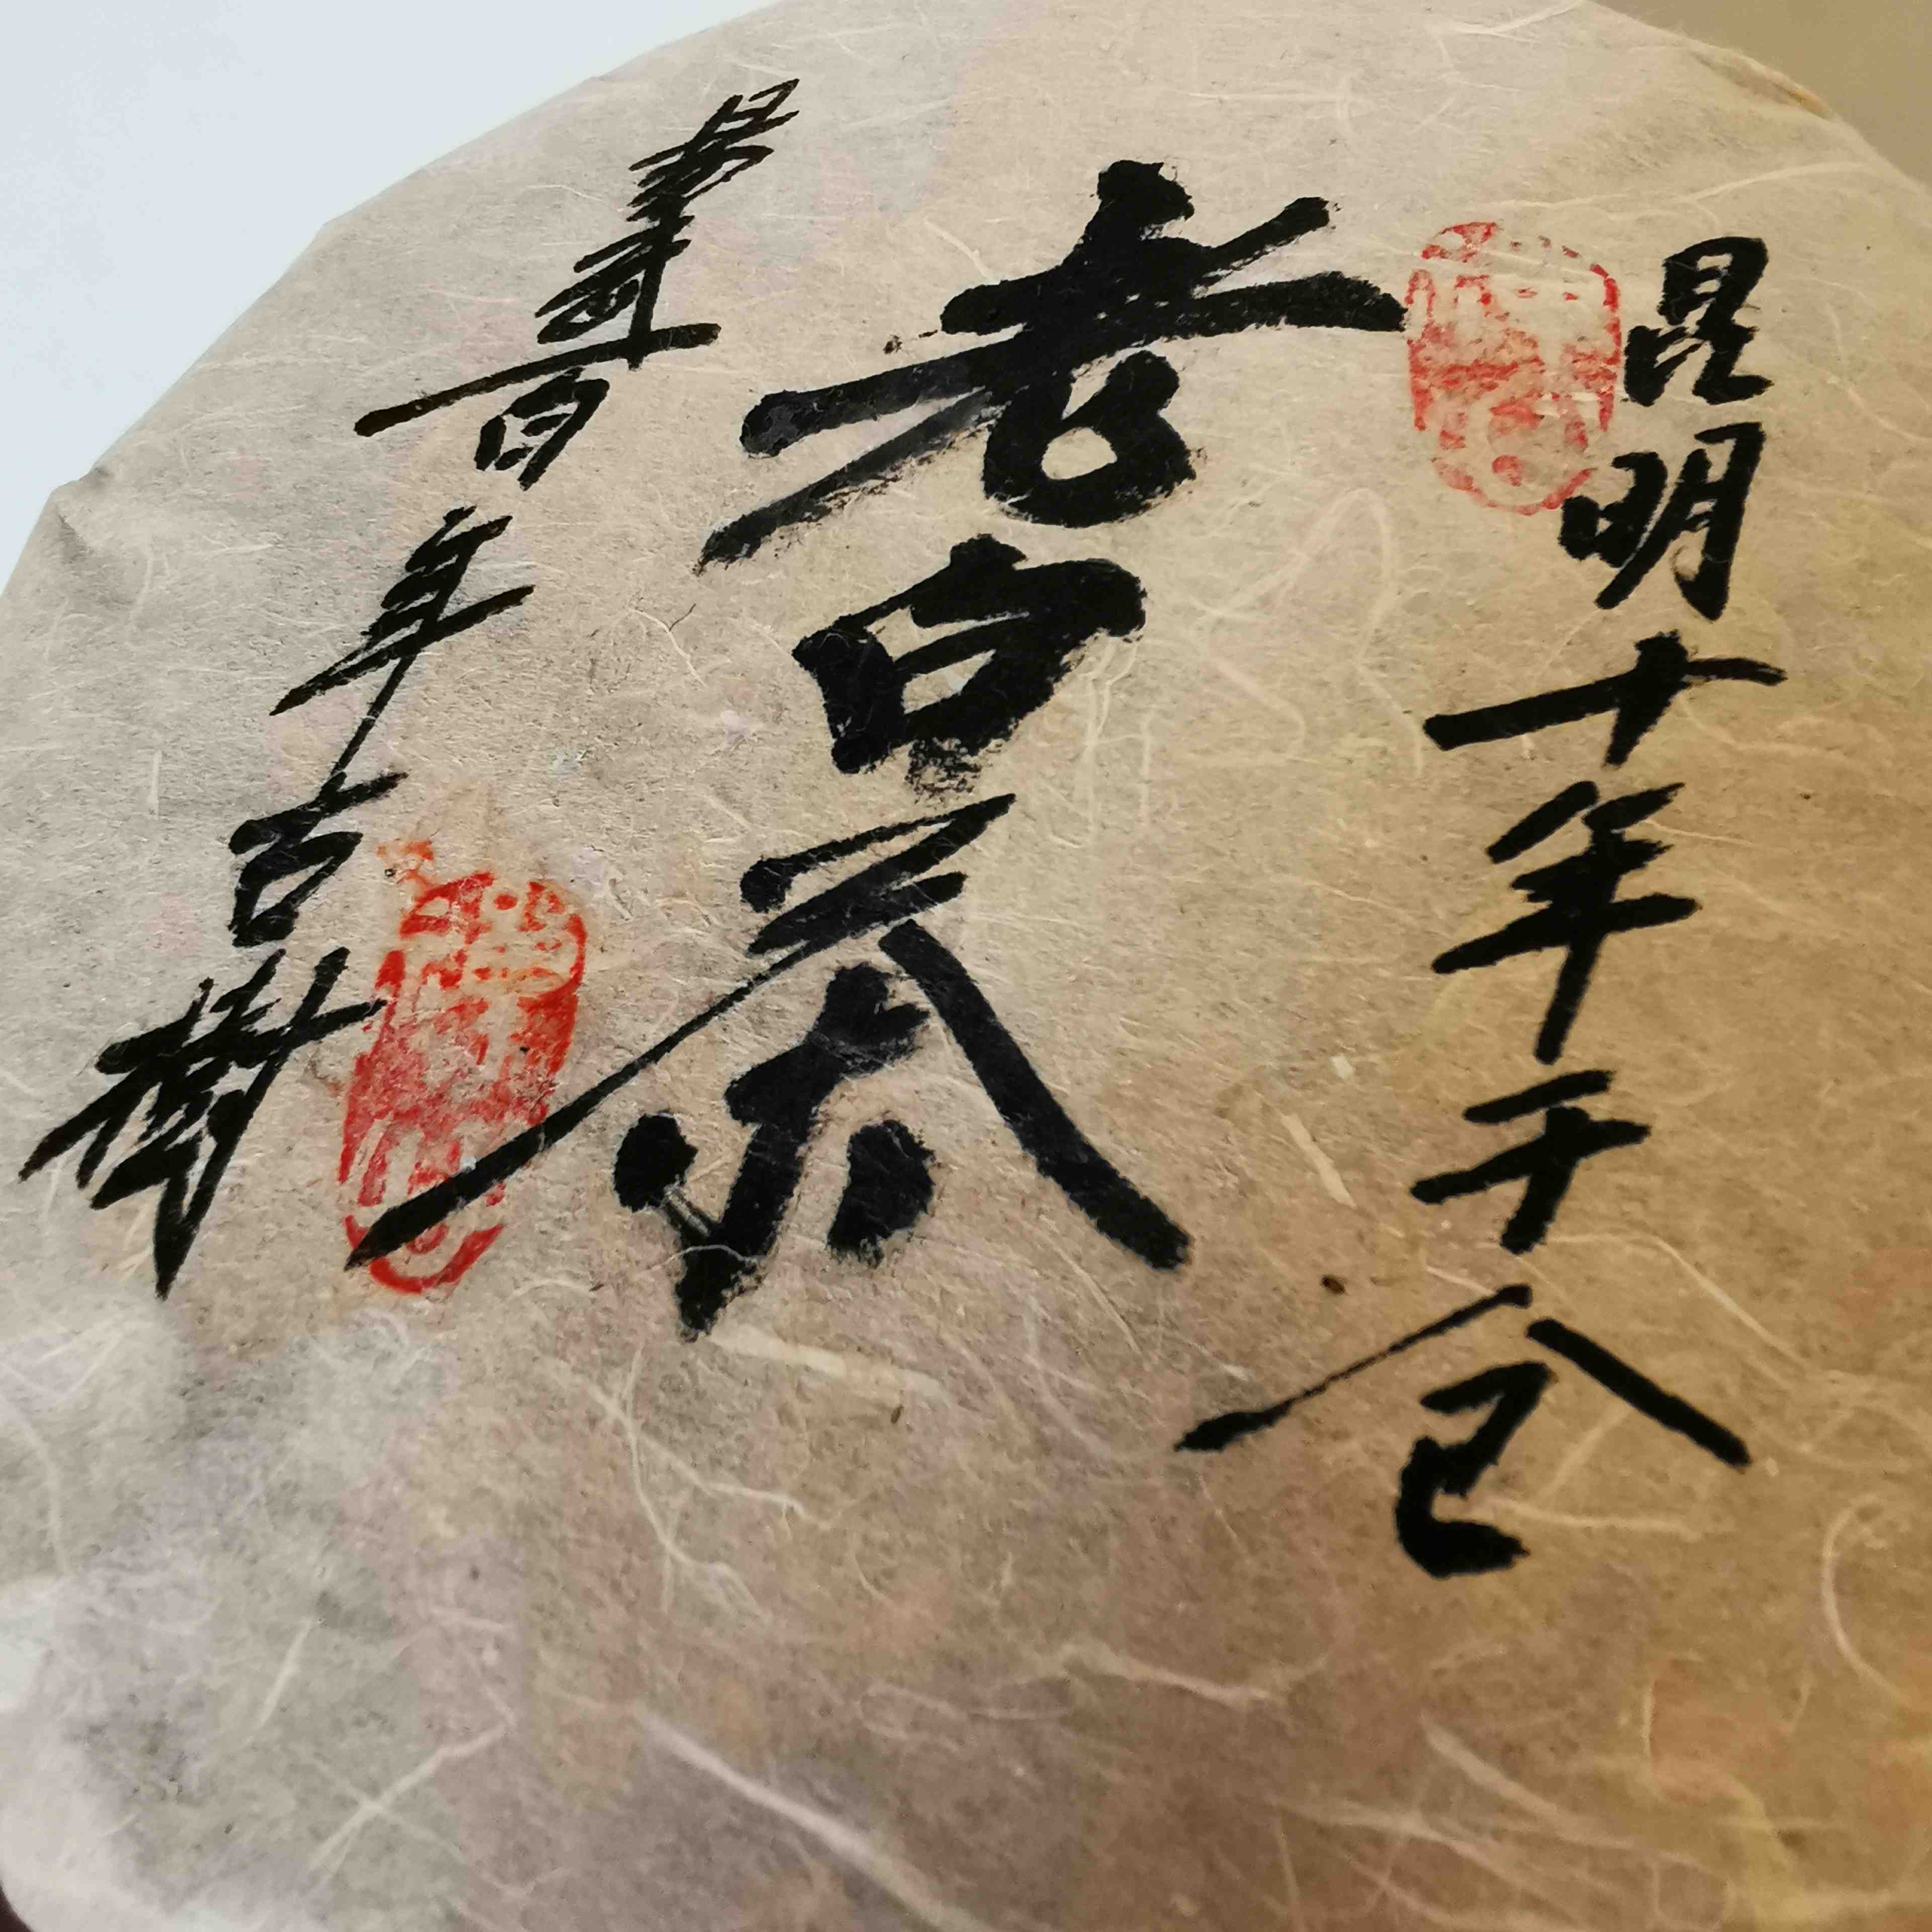 昆明十年干仓
老白茶
景迈百年古樹